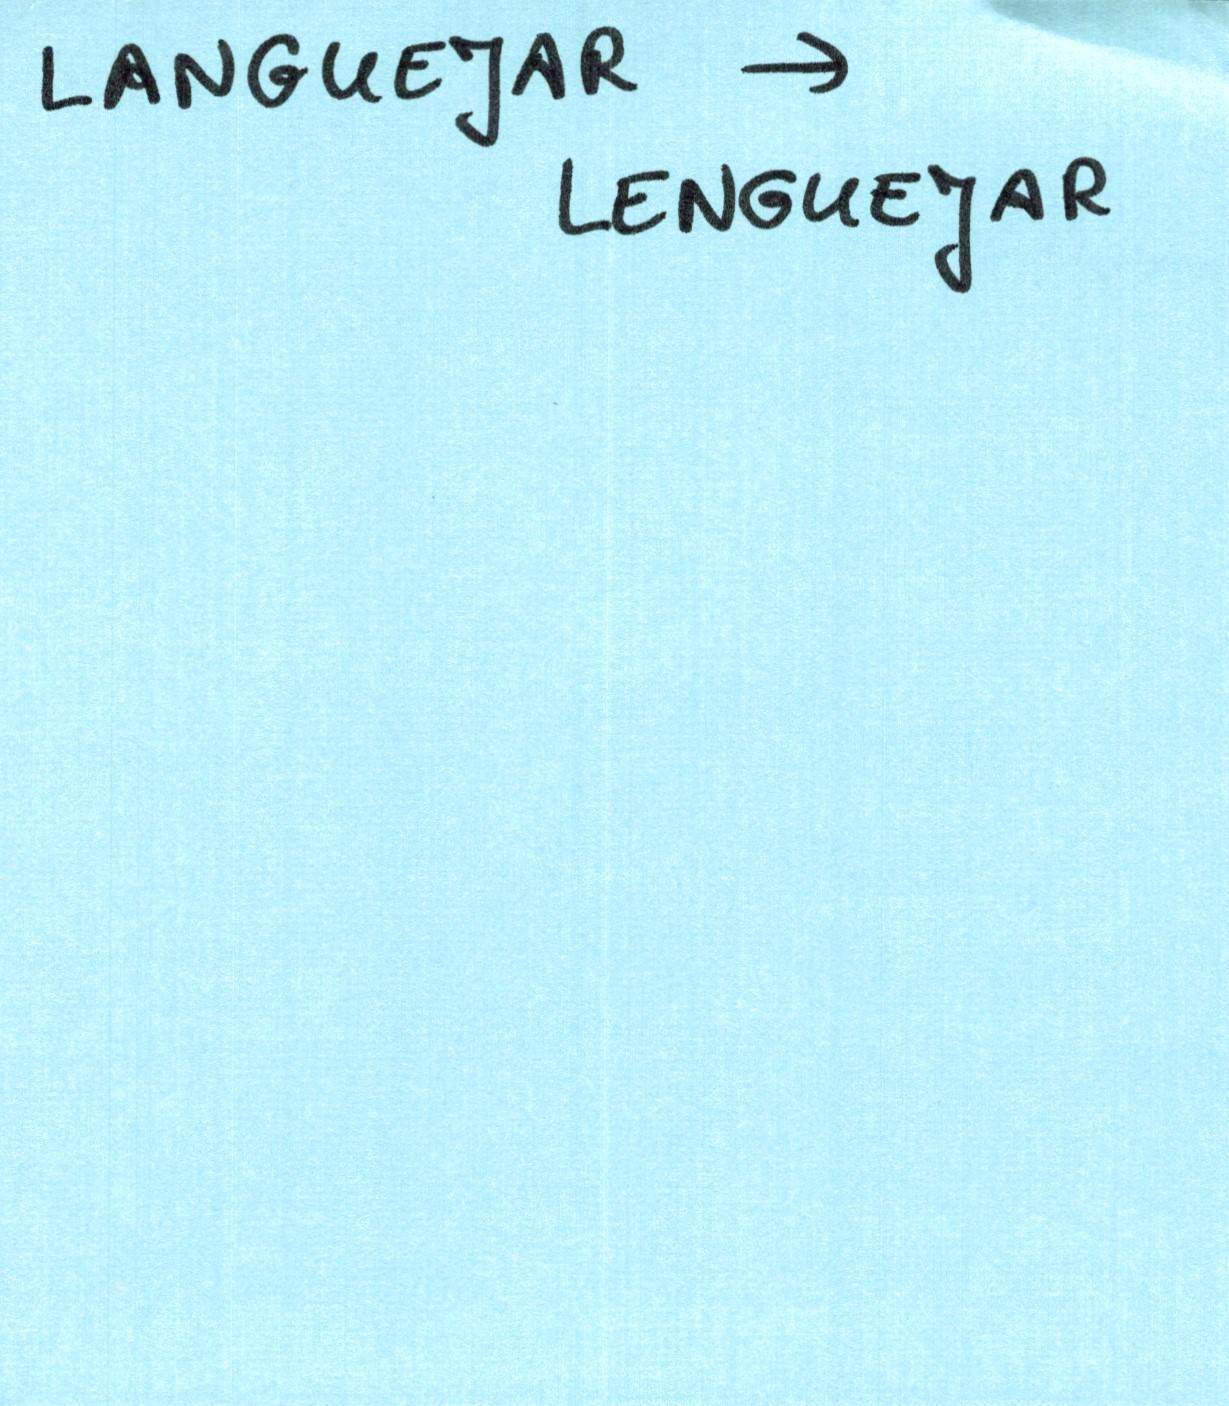 LANGUEJAR →
LENGUEJAR